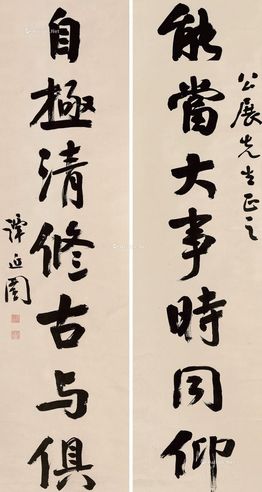 公展先生正之
能當大事時同仰
自極清修古与俱
譚延闿